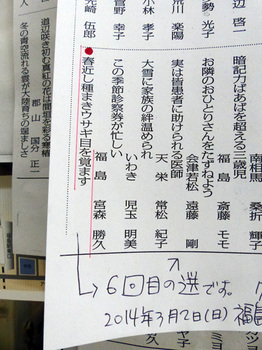 辺 啓一
暗記力ばあばを超える三歳児
南相馬 桑折 輝子
お隣のおひとりさんをたずねよう
福島 斎藤 モモ
実は皆患者に助けられる医師
会津若松 遠藤 剛
大雪に家族の絆温められ
天栄 常松 紀子
この季節診察券が忙しい
いわき 児玉 明美
●春近し種まきウサギ目を覚ます
福島 宮森 勝久
勢 光子
川 楽陽
小林 孝子
菅野 幸子
先崎 伍郎
道辺咲き初む真紅の花は間垣を彩る寒椿
郡山 国分 正一
冬の青空流れる雲が大陸育ちの逞ましさ
6回目の選です。
2014年3月2日(日)福島